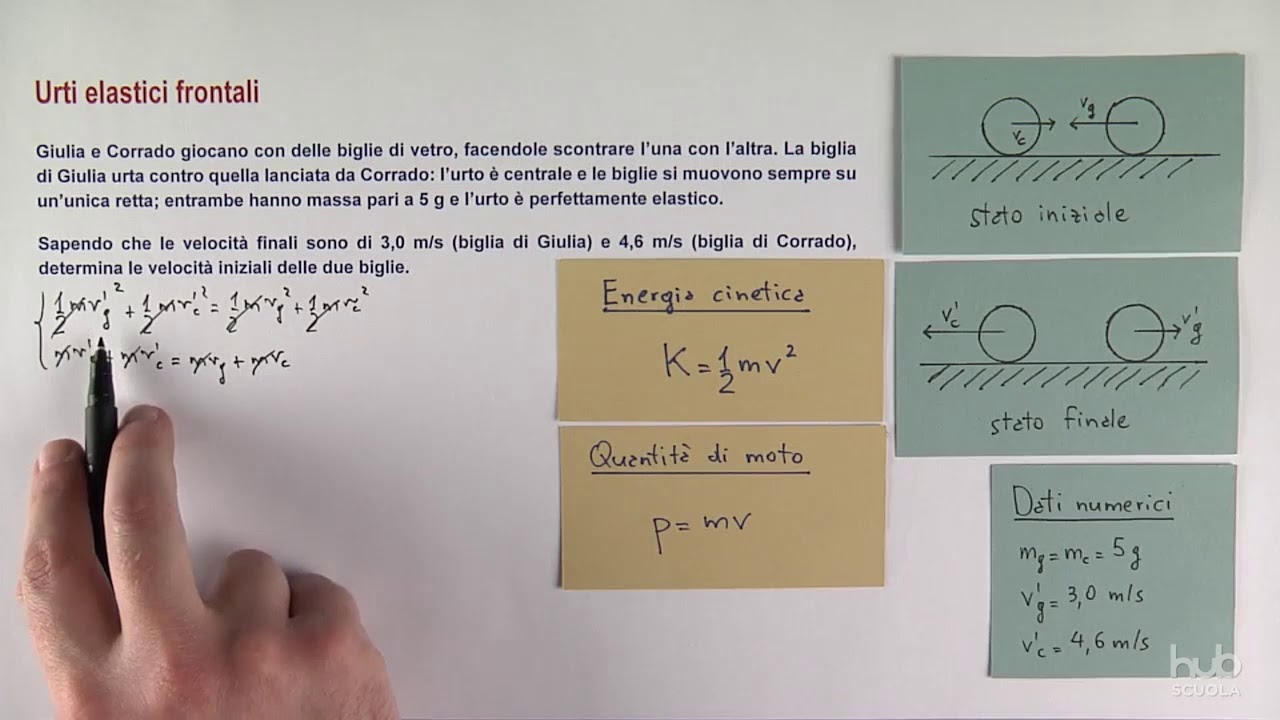 Urti elastici frontali
Giulia e Corrado giocano con delle biglie di vetro, facendole scontrare l'una con l'altra. La biglia
di Giulia urta contro quella lanciata da Corrado: l'urto è centrale e le biglie si muovono sempre su
un'unica retta; entrambe hanno massa pari a 5 g e l'urto è perfettamente elastico.
Sapendo che le velocità finali sono di 3,0 m/s (biglia di Giulia) e 4,6 m/s (biglia di Corrado),
determina le velocità iniziali delle due biglie.
½mv'g² + ½mv'c² = ½mvg² + ½mvc²
+ mv'c = mvg + mvc
Energia cinetica
K = ½mv²
Quantità di moto
p = mv
vc vg
stato iniziale
v'c v'g
stato finale
Dati numerici
mg = mc = 5 g
v'g = 3,0 m/s
v'c = 4,6 m/s
hub
SCUOLA